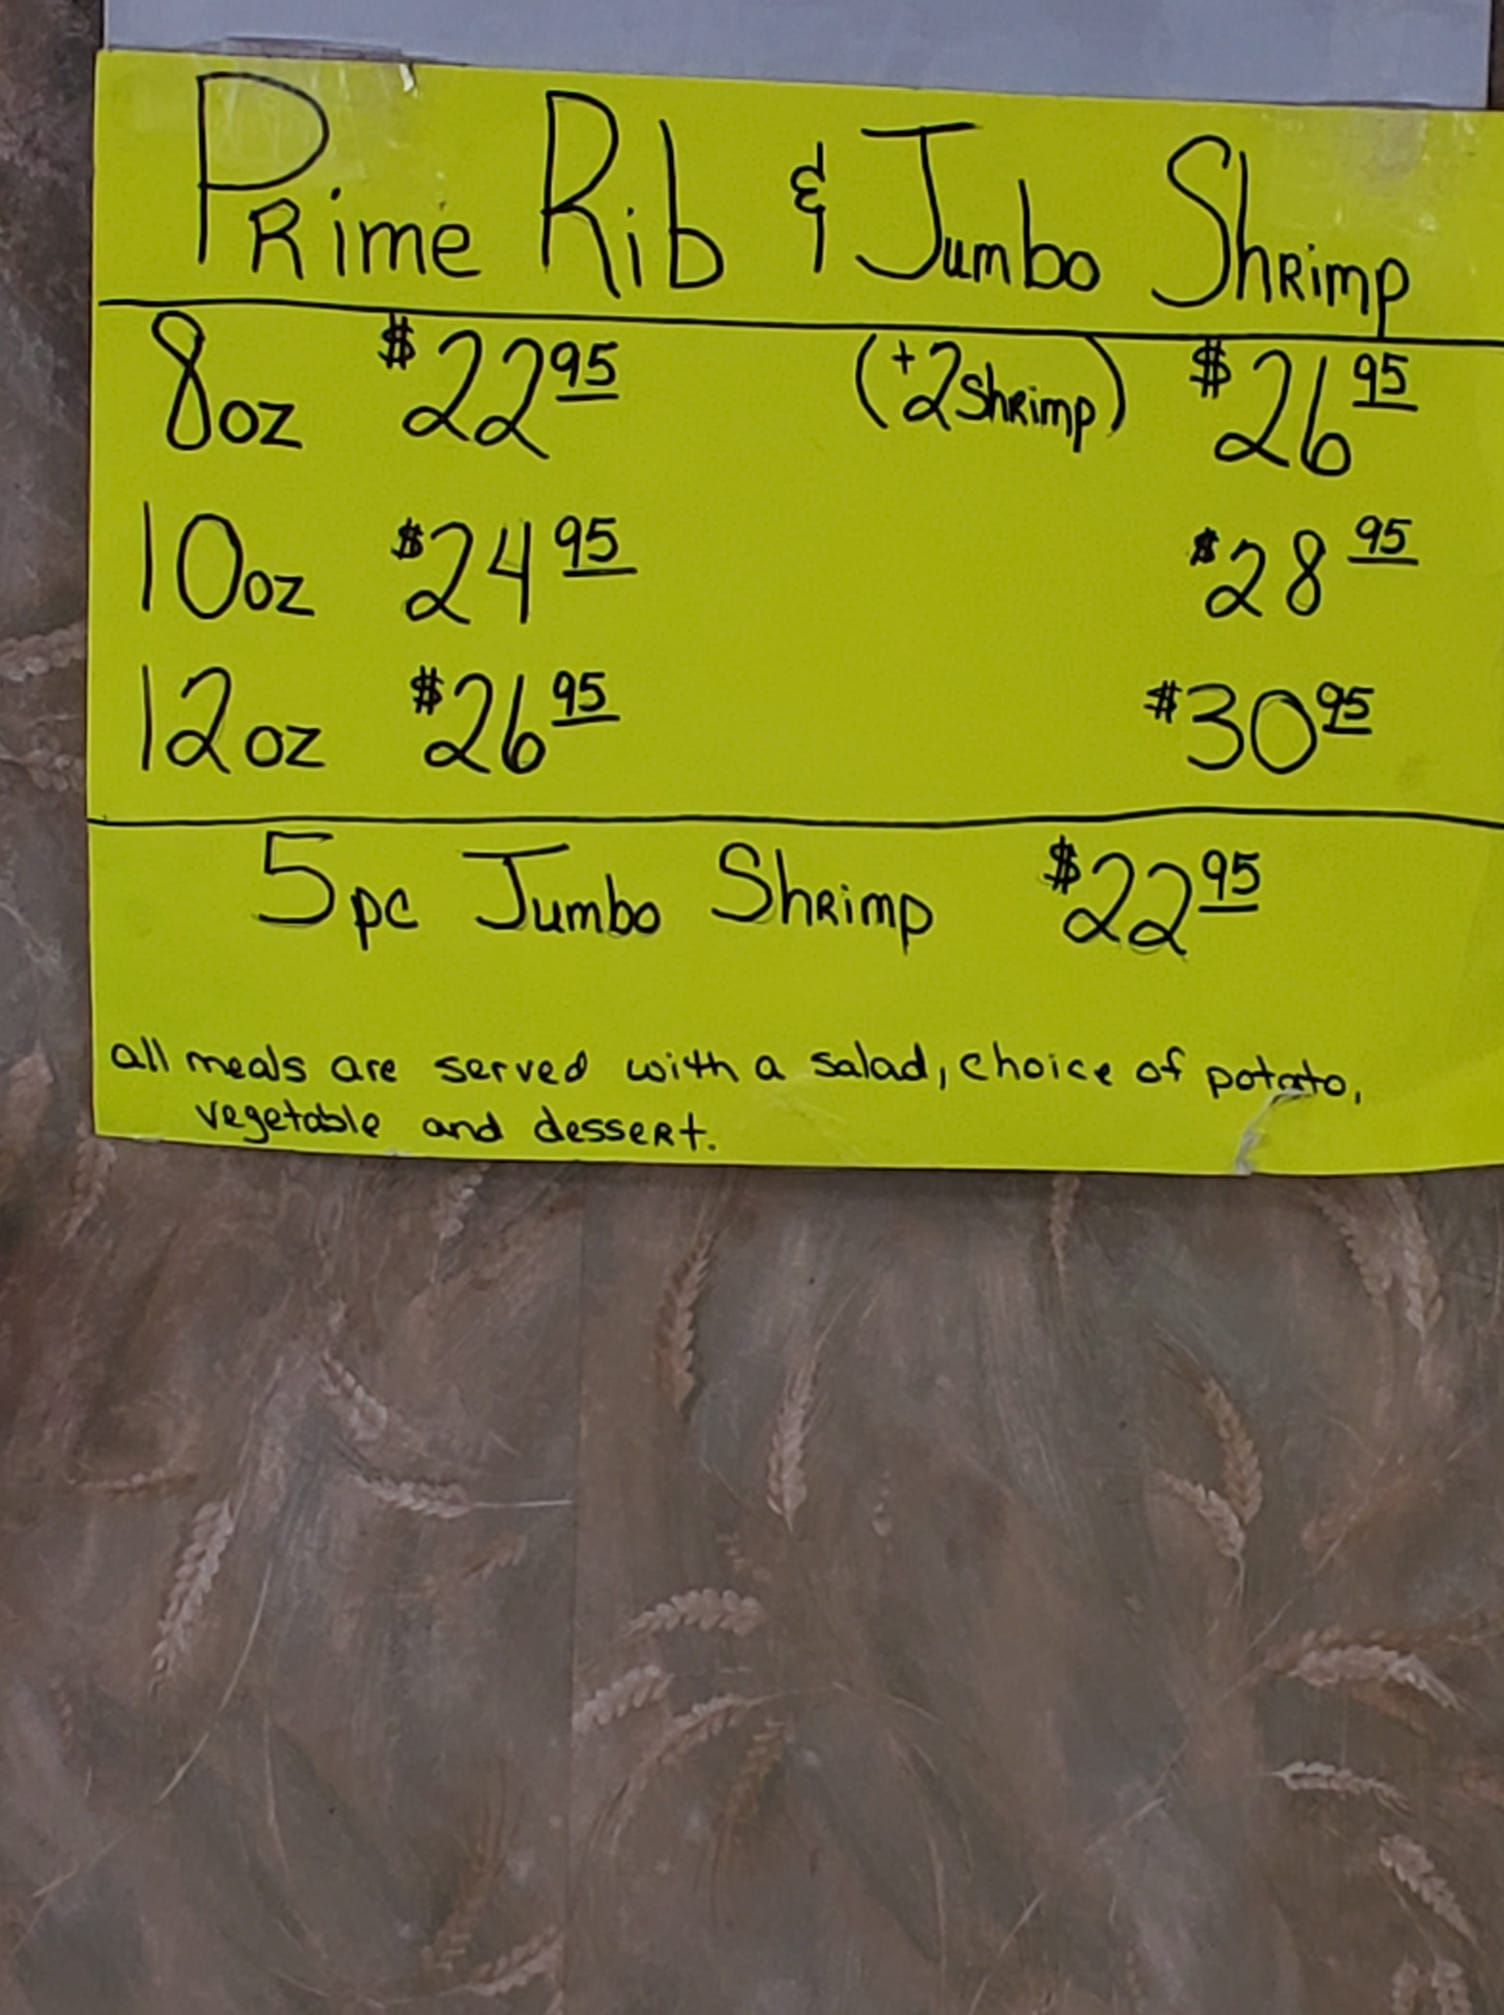 Prime Rib & Jumbo Shrimp
8oz $22 95 (+2 Shrimp) $26 95
10oz $24 95 $28 95
12oz $26 95 $30 95
5pc Jumbo Shrimp $22 95
all meals are served with a salad, choice of potato,
vegetable and dessert.